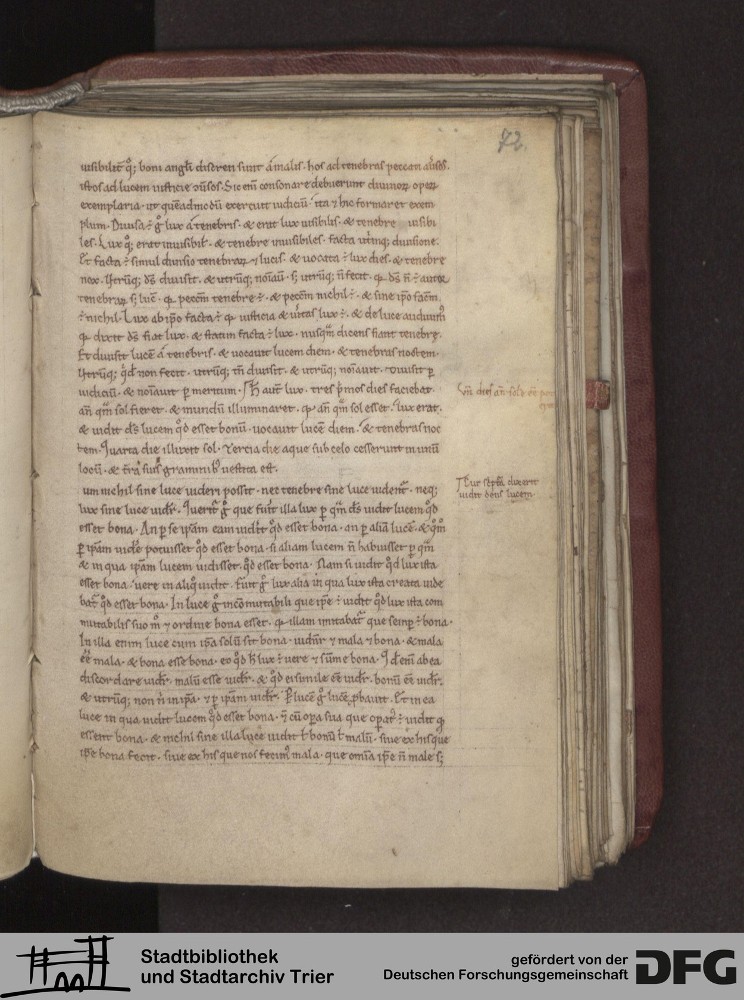 72
uisibilit͛ q;ˀ boni angl̃i discreti sunt á malis. hos ad tenebras peccati
istos ad lucem iusticie. Sic eni͂ consonare debuerunt diuinoꝝ opeꝝ
exemplaria. ut que͂admodu͂ exercuit iudiciu͂. ita ⁊ hic formaret exem
plum. Diuisa ÷ g̊ lux á tenebris. & erat lux uisibilis. & tenebre uisibi
les. Lux q;ˀ erat inuisibil͛. & tenebre inuisibiles. facta utri͂q; diuisione.
Et facta ÷ simul diuisio tenebraꝝ ⁊ lucis. & uocata ÷ lux dies. & tenebre
nox. Utru͂q; ds̃ diuisit. & utru͂q; noiauit. s; utru͂q; n̄ fecit. qꝛ ds̃ n̄ ÷ autor
tenebraꝝ s; luc̄. qꝛ pecc̄m tenebre ÷. & pecc̄m nichil ÷. & sine ip̄o fac̄m
÷ nichil. Lux ab ip̄o facta ÷ qꝛ iusticia & ūitas lux ÷. & de luce audiuim͛
qꝛ dixit ds̃ fiat lux. & statim facta ÷ lux. nusq͂m dicens fiant tenebre.
Et diuisit luce͂ á tenebris. & uocauit lucem diem. & tenebras noctem.
Utru͂q; q̊d non fecit. utru͂q; tn̄ diuisit. & utru͂q; noi͂auit. Diuisit ꝑ
iudiciu͂. & noi͂auit ꝑ meritum. H̄ aut͂ lux. tres p͛mos dies faciebat.
an̄ q͂m sol fieret. & mundu͂ illuminaret. qꝛ an̄ q͂m sol esset. lux erat.
& uidit ds̃ lucem q̊d esset bonu͂. uocauit luce͂ diem. & tenebras noc
tem. Quarta die illuxit sol. Tercia die aque sub celo cesserunt in unu͂
locu͂. & t̄ra suis graminib͛ uestita est.
um nichil sine luce uideri possit. nec tenebre sine luce uident͛. neq;
lux sine luce uidr̃. Querit͛ g̊ que fuit illa lux ꝑ q͂m ds̃ uidit lucem q̊d
esset bona. An ꝑ se ip̄sam eam uidit q̊d esset bona. an ꝑ alia͂ luce͂. & q̊m̄
ꝑ ip̄am uide͛ potuisset q̊d esset bona. si aliam lucem n̄ habuisset ꝑ q͂m
& in qua ip̄am lucem uidisset q̊d esset bona. Nam si uidit q̊d lux ista
esset bona. uere in aliq̊ uidit. Fuit g̊ lux alia in qua lux ista creata uide
bat͛ q̊d esset bona. In luce g̊ inco͂mutabili que ip̄e ÷ uidit q̊d lux ista com
mutabilis suo m̊ ⁊ ordine bona esset. qꝛ illam imitabat͛ que semp̄ ÷ bona.
In illa enim luce cum ip̄a solu͂ sit bona. uident͛ ⁊ mala ⁊ bona. & mala
ee͂ mala. & bona esse bona. eo q̊d h̄ lux ÷ uere ⁊ su͂me bona. Q̊d eni͂ ab ea
discordare uidr̃. malu͂ esse uidr̃. & q̊d ei simile ee͂ uidr̃. bonu͂ ee͂ uidr̃.
& utru͂q; non n̄ in ip̄a. ⁊ ꝑ ip̄am uidr̃. Per luce͂ g̊ luce͂ ꝓbauit. Et in ea
luce in qua uidit lucem q̊d esset bona. ⁊ cu͂ op̄a sua que opat͛ ÷ uidit qꝛ
essent bona. & nichil sine illa luce uidit ł bonu͂ ł malu͂. siue ex his que
ip̄e bona fecit. siue ex his que nos fecim͛ mala. que om̄ia ip̄e n̄ male s;
Cur sc̄ptu͂ dixerit
uidit deus lucem
Stadtbibliothek
und Stadtarchiv Trier
gefördert von der
Deutschen Forschungsgemeinschaft
DFG